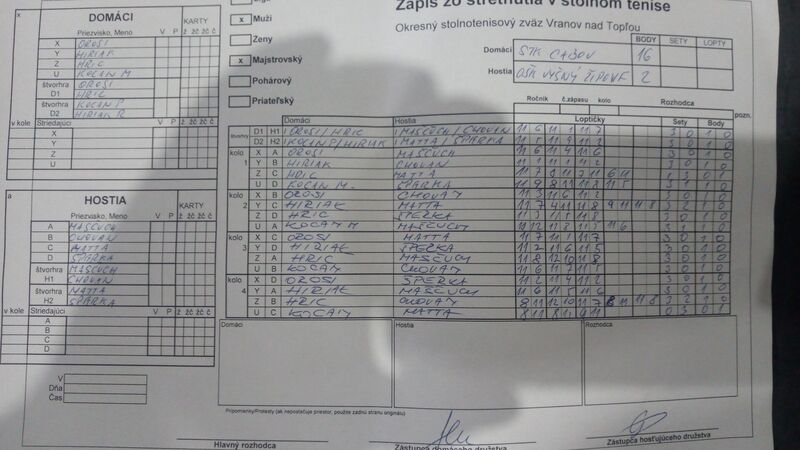 Zápis zo stretnutia v stolnom tenise
Okresný stolnotenisový zväz Vranov nad Topľou
x Muži
Ženy
x Majstrovský
Pohárový
Priateľský
BODY SETY LOPTY
Domáci STK CABOV 16
Hostia OŠK VYŠNÝ ŽIPOV F 2
x DOMÁCI KARTY
Priezvisko, Meno V P ž žč žč č
X OROSI
Y HIRIAK
Z HRIC
U KOCAN M
štvorhra OROSI
D1 HRIC
štvorhra KOCAN P
D2 HIRIAK R
v kole Striedajúci V P ž žč žč č
X
Y
Z
U
a HOSTIA KARTY
Priezvisko, Meno V P ž žč žč č
A MASCUCH
B CHOVAN
C MATTA
D ŠPARKA
štvorhra MASCUCH
H1 CHOVAN
štvorhra MATTA
H2 ŠPARKA
v kole Striedajúci V P ž žč žč č
A
B
C
D
V
Dňa
Čas
Ročník č.zápasu kolo Rozhodca
Domáci Hostia Loptičky Sety Body pozn.
štvorhry D1 H1 OROSI / HRIC MASCUCH / CHOVAN 3 0 1 0
D2 H2 KOCAN P / HIRIAK MATTA / ŠPARKA 3 0 1 0
kolo X A OROSI MASCUCH 11 6 11 4 11 6 3 0 1 0
1 Y B HIRIAK CHOVAN 3 0 1 0
Z C HRIC MATTA 1 3 0 1
U D KOCAN M. ŠPARKA 3 1 1 0
kolo X B OROSI CHOVAN 11 3 11 6 11 2 3 0 1 0
2 Y C HIRIAK MATTA 3 2 1 0
Z D HRIC ŠPERKA 3 0 1 0
U A KOCAN M MASCUCH 3 1 1 0
kolo X C OROSI MATTA 11 7 11 1 11 7 3 0 1 0
3 Y D HIRIAK ŠPERKA 11 2 11 6 11 5 3 0 1 0
Z A HRIC MASCUCH 11 8 12 10 11 8 3 0 1 0
U B KOCAN CHOVAN 11 6 11 7 11 5 3 0 1 0
kolo X D OROSI ŠPERKA 11 2 11 4 11 2 3 0 1 0
4 Y A HIRIAK MASCUCH 11 6 11 5 11 6 3 0 1 0
Z B HRIC CHOVAN 8 11 12 10 11 7 8 11 11 8 3 2 1 0
U C KOCAN MATTA 8 11 8 11 9 11 0 3 0 1
Domáci Hostia Rozhodca
Pripomienky/Protesty (ak nepostačuje priestor, použite zadnú stranu originálu)
Hlavný rozhodca
Zástupca domáceho družstva
Zástupca hosťujúceho družstva